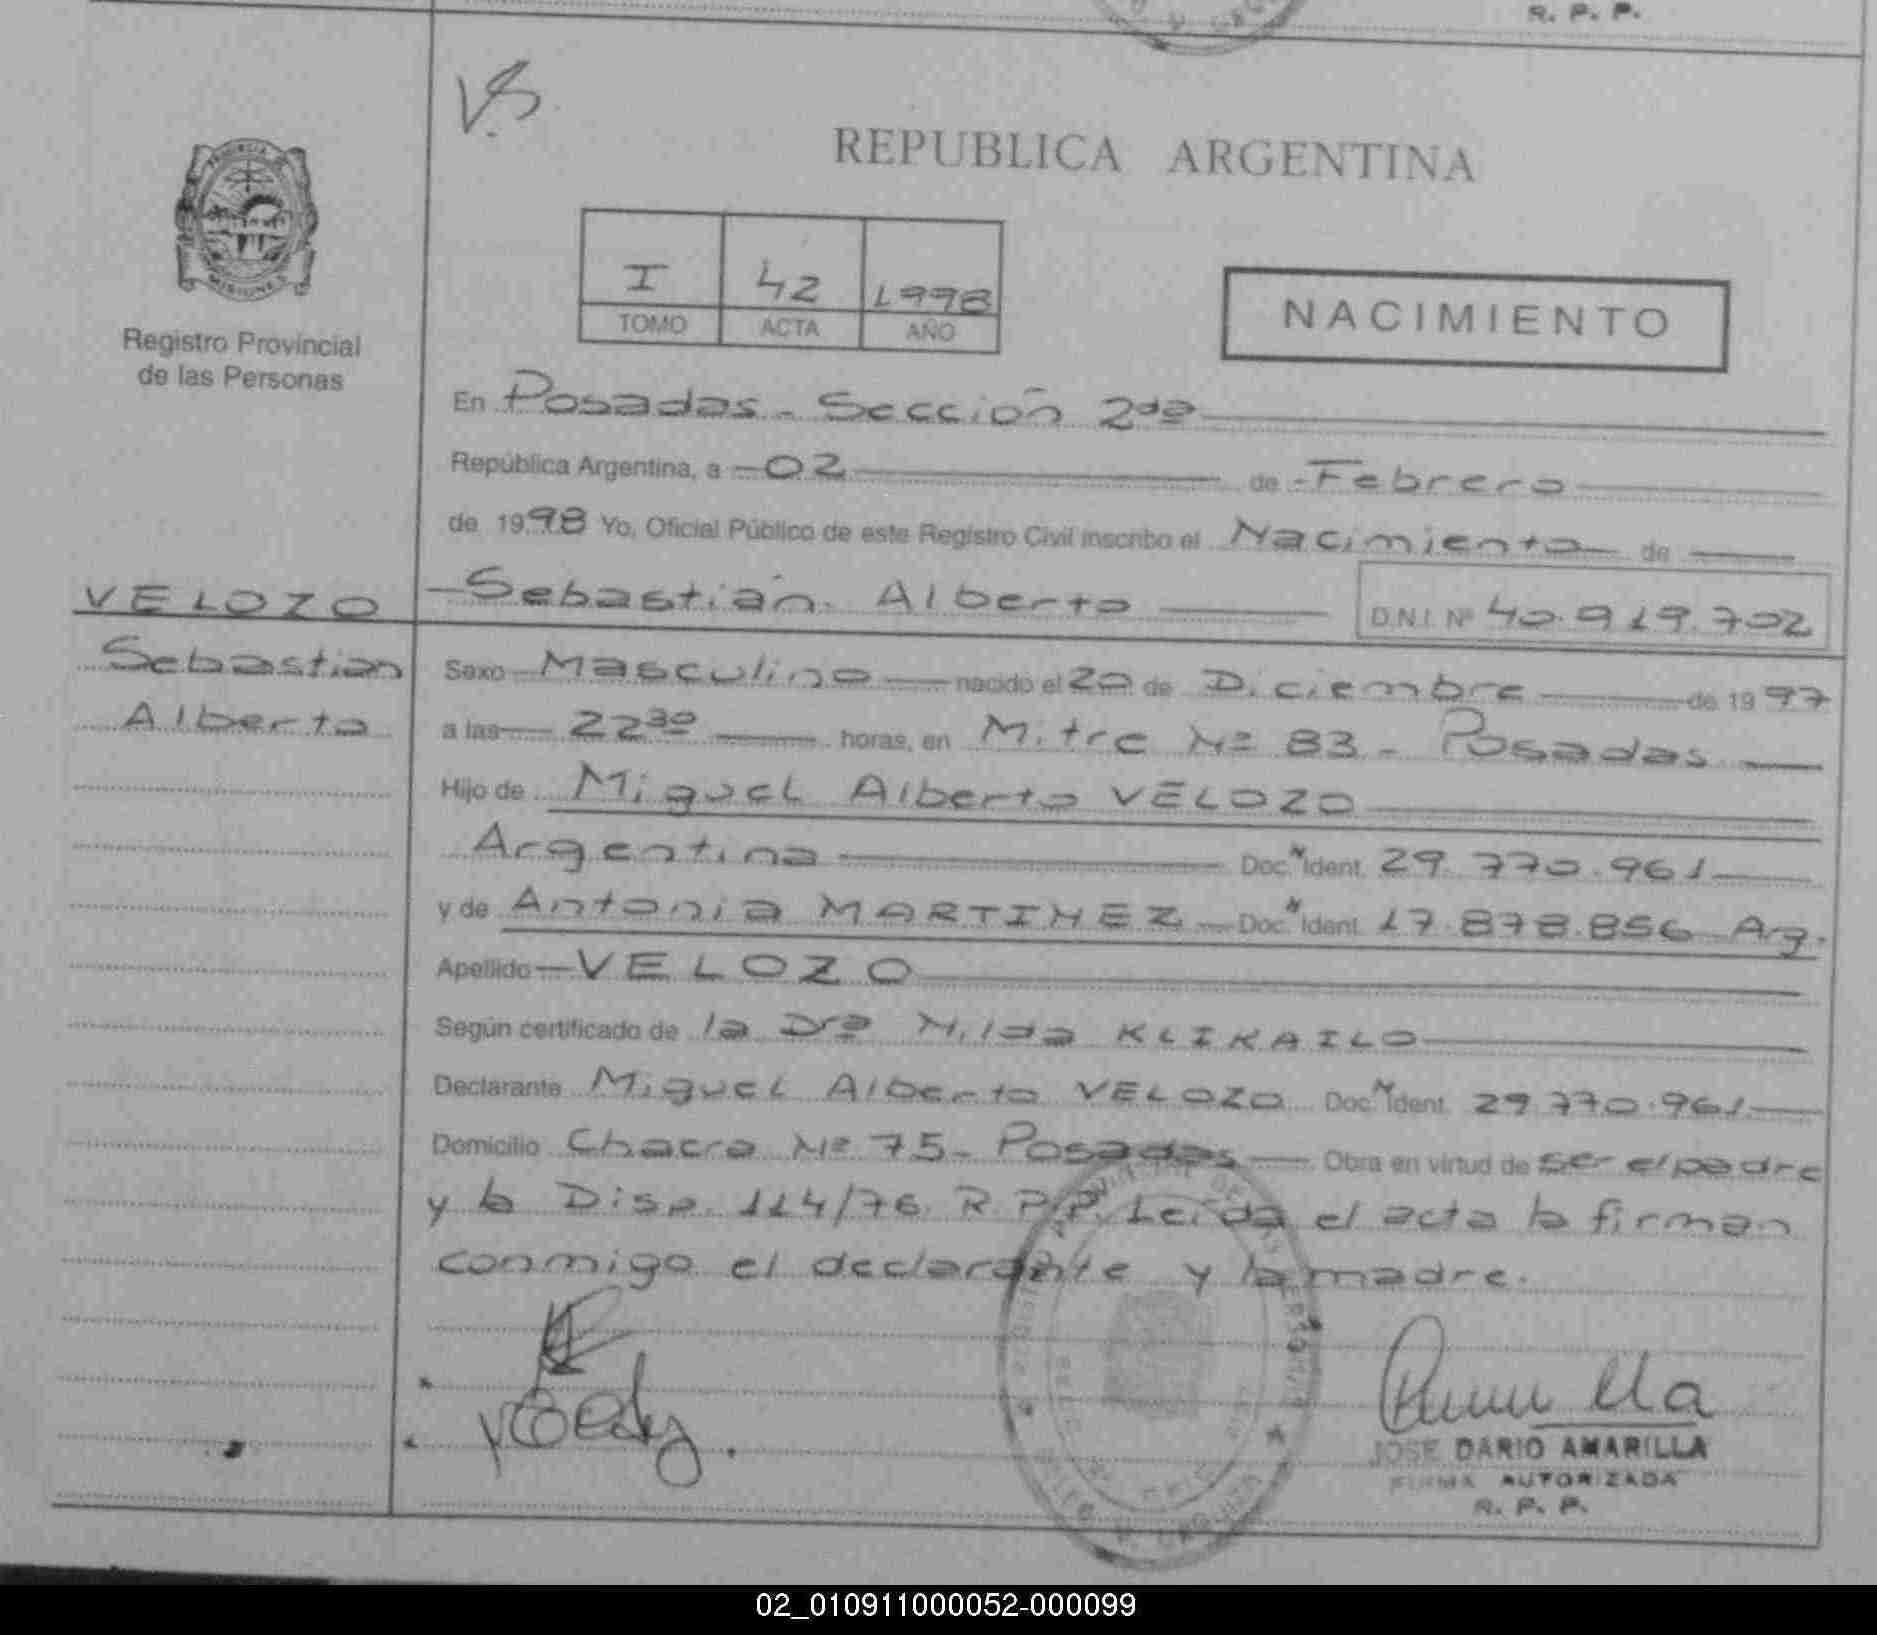 R. P. P.
V.S
REPUBLICA ARGENTINA
PROVINCIA DE
MISIONES
Registro Provincial
de las Personas
I 42 1998
TOMO ACTA AÑO
NACIMIENTO
En Posadas - Sección 2da
República Argentina, a 02 de Febrero
de 1998 Yo, Oficial Público de este Registro Civil inscribo el Nacimiento de
VELOZO Sebastián Alberto D.N.I. Nº 40.919.702
Sebastian
Alberto
Sexo Masculino nacido el 20 de Diciembre de 1997
a las 22 30 horas, en Mitre Nº 83 - Posadas
Hijo de Miguel Alberto VELOZO
Argentina Doc. N Ident. 29.770.961
y de Antonia MARTINEZ Doc. N Ident. 17.878.856 Arg.
Apellido VELOZO
Según certificado de la Dra Nilda KLIKAILO
Declarante Miguel Alberto VELOZO Doc. N Ident. 29.770.961
Domicilio Chacra Nº 75 - Posadas Obra en virtud de ser el padre
y la Disp. 114/76 R.P.P. Leída el acta la firman
conmigo el declarante y la madre.
JOSE DARIO AMARILLA
FIRMA AUTORIZADA
R. P. P.
02_010911000052-000099